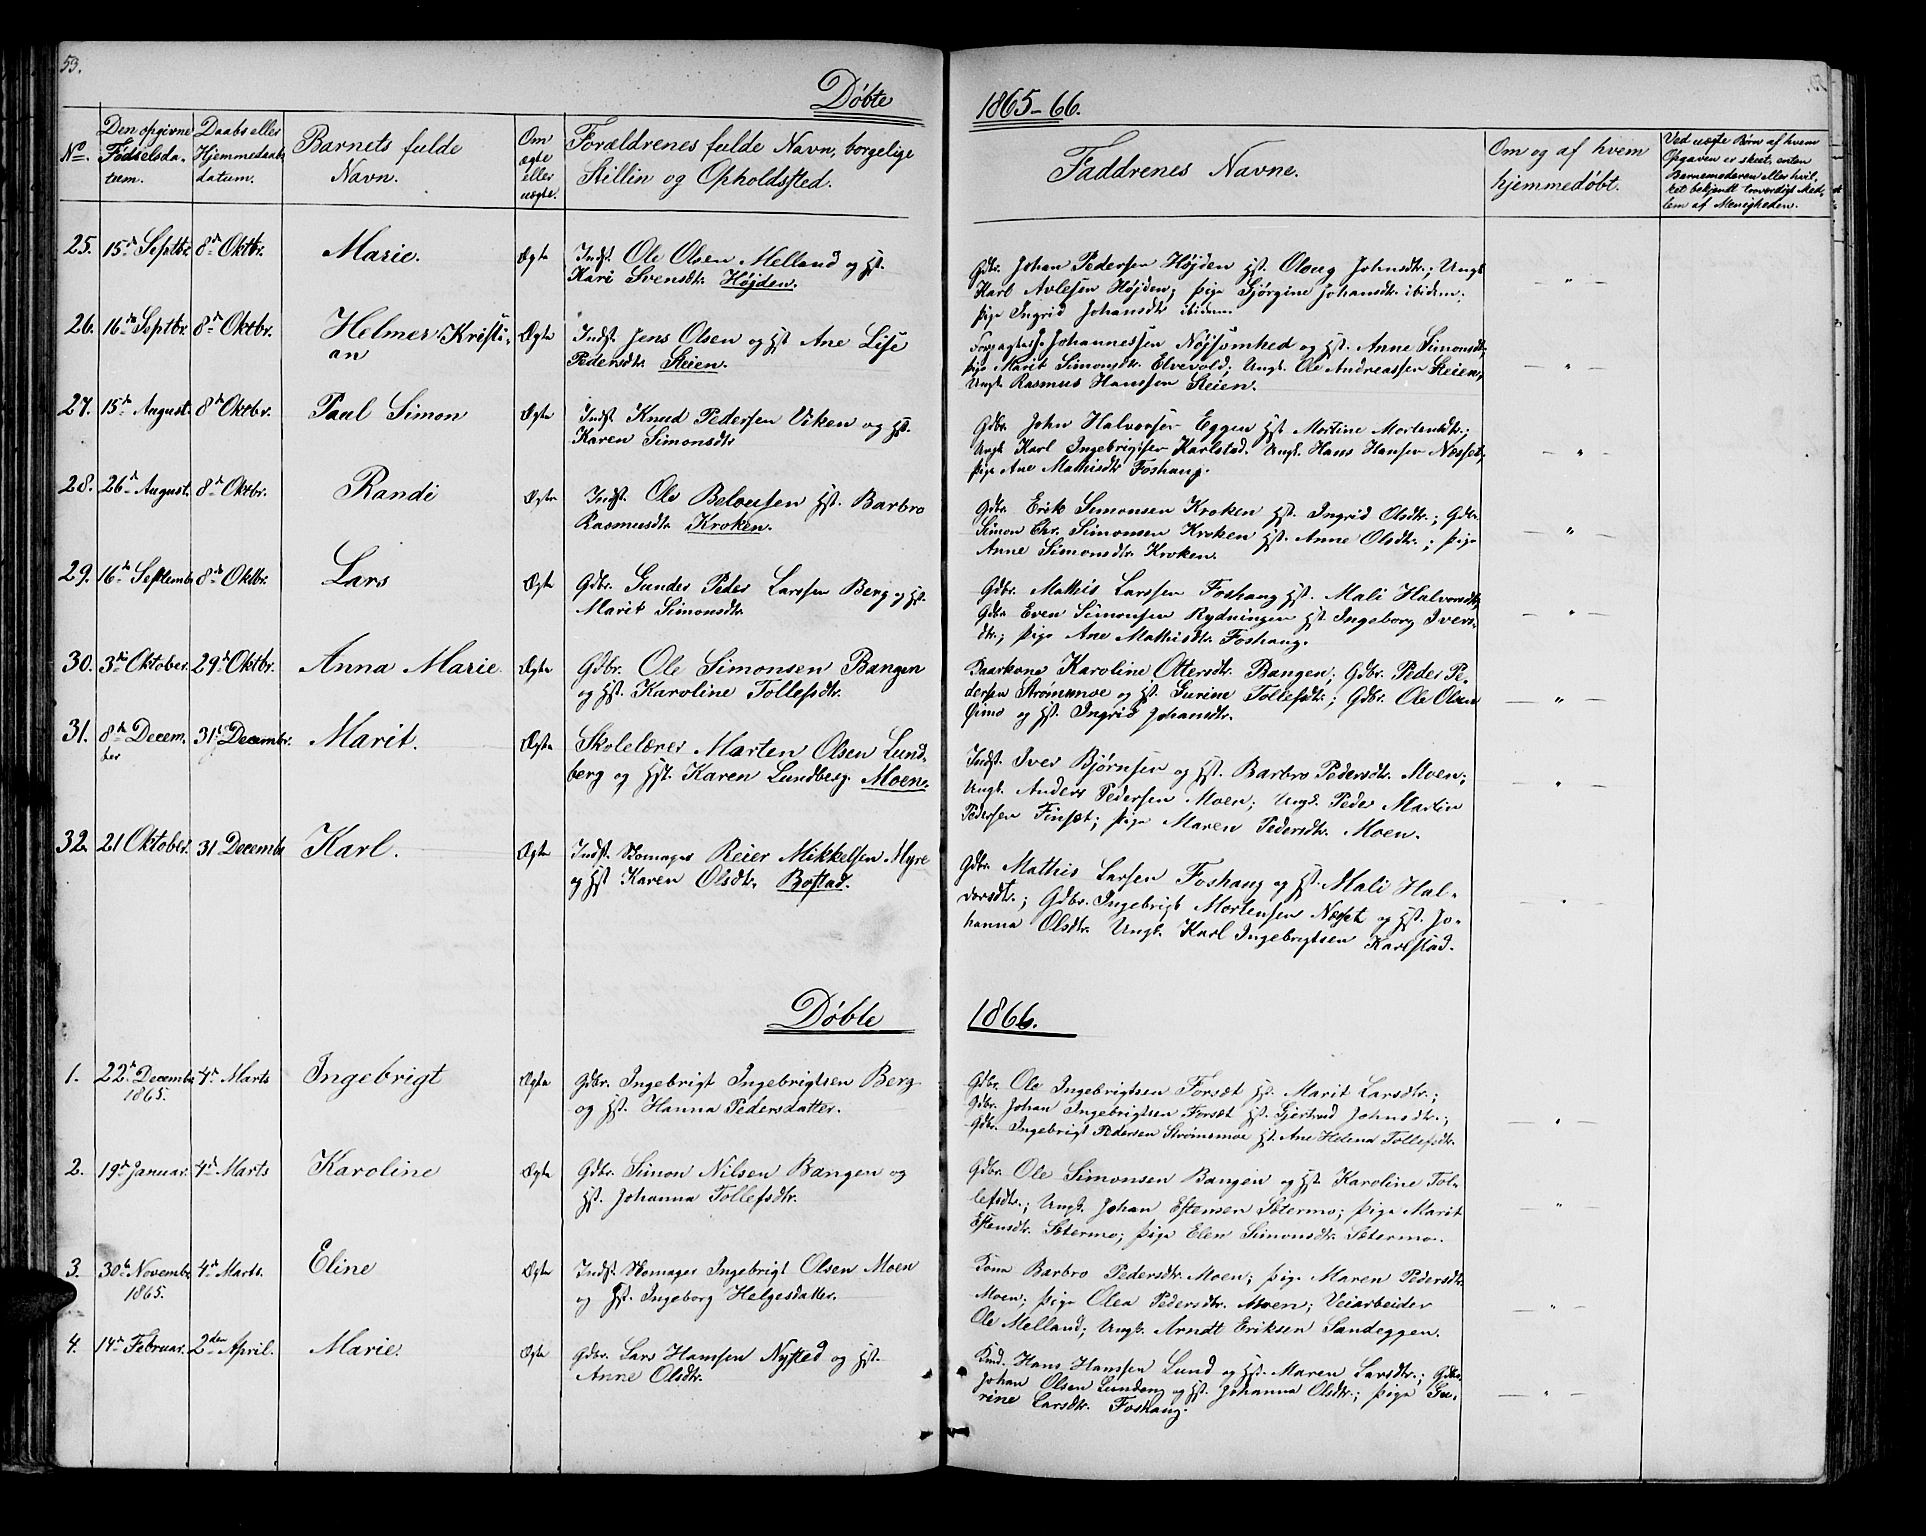 53.
Døbte
1865-66.
No.
Den opgivne Fødselsdatum.
Daabs eller Hjemmedaabsdatum.
Barnets fulde Navn.
Om ægte eller uægte.
Forældrenes fulde Navn, borgelige Stillin og Opholdsted.
Faddrenes Navne.
Om og af hvem hjemmedøbt.
Ved uægte Børn af hvem Opgaven er skeet, enten Barnemoderen eller hvilket bekjendt troværdigt Medlem af Menigheden.
25. 15de Septbr. 8de Oktbr. Marie. Ægte Indst. Ole Olsen Melland og Hst.
Kari Svensdtr. Højden.
Gdbr. Johan Pedersen Højden Hst. Oloug Johnsdtr.; Ungk.
Karl Avlesen Højden; Pige Gjørgine Johansdtr. ibidem;
Pige Ingrid Johansdtr. ibidem. — " —
26. 16de Septbr. 8de Oktbr. Helmer Kristi-
an Ægte Indst. Jens Olsen og Hst Ane Lise
Pedersdtr. Steien.
Johannessen Nøjsomhed og Hst. Anne Simonsdtr.
Pige Marit Simonsdtr. Elvevold; Ungk. Ole Andreassen Steien,
Ungk. Rasmus Hanssen Steien. — " —
27. 15de August. 8de Oktbr. Paul Simon Ægte Indst. Knud Pedersen Viken og Hst.
Karen Simonsdtr
Gdbr. John Halvorsen Eggen Hst Martine Mortensdtr.;
Ungk Karl Ingebrigtsen Karlstad. Ungk. Hans Hansen Næsset,
Pige Ane Mathisdtr Foshaug. — " —
28. 26de August. 8de Oktbr. Randi Ægte Indst. Ole Belousen Hst. Barbro
Rasmusdtr. Kroken.
Gdbr. Erik Simonsen Kroken Hst. Ingrid Olsdtr.; Gdbr.
Simon Chr. Simonsen Kroken Hst. Anne Olsdtr.; Pige
Anne Simonsdtr Kroken. — " —
29. 16de Septembr 8de Oktbr. Lars Ægte Gdbr. Gunder Peder Larssen Berg og Hst.
Marit Simonsdtr.
Gdbr. Mathis Larssen Foshaug Hst. Mali Halvorsdtr,
Gdbr Even Simonsen Rydningen Hst. Ingeborg Ivers-
dtr.; Pige Ane Mathisdtr. Foshaug. — " —
30. 3die Oktober. 29de Oktbr. Anna Marie. Ægte Gdbr. Ole Simonsen Bangen
og Hst. Karoline Tollefsdtr.
Karoline Ottersdtr. Bangen; Gdbr. Peder Pe-
dersen Strømsmoe og Hst. Gurine Tollefsdtr.; Gdbr. Ole Olsen
Øimo og Hst. Ingrid Johansdtr. — " —
31. 8de Decem-
ber 31te Decembr. Marit. Ægte Skolelærer Marten Olsen Lund-
berg og Hst. Karen Lundberg. Moene.
Indst. Iver Bjørnsen og Hst. Barbro Pedersdtr. Moen;
Ungk. Anders Pedersen Moen; Ungk. Peder Martin
Pedersen Finsæt; Pige Maren Pedersdtr. Moen. — " —
32. 21 Oktober. 31 Decembr Karl. Ægte Indst. Skomager Reier Mikkelsen Myre
og Hst Karen Olsdtr. Bostad.
Gdbr. Mathis Larsen Foshaug og Hst. Mali Hal-
vorsdtr.; Gdbr. Ingebrigt Mortensen Næsset og Hst. Jo-
hanna Olsdtr. Ungk. Karl Ingebrigtsen Karlstad. — " —
Døbte
1866.
1. 22de Decembr
1865. 4de Marts Ingebrigt Ægte Gdbr. Ingebrigt Ingebrigtsen Berg
og Hst. Hanna Pedersdatter.
Gdbr. Ole Ingebrigtsen Forsæt Hst. Marit Larsdtr.;
Gdbr. Johan Ingebrigtsen Forsæt Hst. Gjertrud Johnsdtr.;
Gdbr. Ingebrigt Pedersen Strømsmoe Hst. Ane Helena Tollefsdtr. — " —
2. 19de Januar. 4de Marts Karoline Ægte Gdbr. Simon Nilsen Bangen og
Hst. Johanna Tollefsdtr.
Gdbr Ole Simonsen Bangen og Hst Karoline Tol-
lefsdtr.; Ungk. Johan Estensen Sætermo; Pige Marit
Estensdtr. Sætermo; Pige Elen Simonsdtr. Sætermo. — " —
3. 30te Novembr
1865. 4de Marts. Eline Ægte Indst. Skomager Ingebrigt Olsen Moen
og Hst. Ingeborg Helgesdatter.
Kone Barbro Pedersdtr. Moen; Pige Maren Pedersdtr.
Moen; Pige Olea Pedersdtr. Moen; Veiarbeider
Ole Melland; Ungk. Arndt Eriksen Sandeggen. — " —
4. 14de Februar. 2den April. Marie. Ægte Gdbr. Lars Hansen Nysted og Hst.
Anne Olsdtr.
Hans Hanssen Lund og Hst. Maren Larsdtr.; Gdbr.
Johan Olsen Lundeng og Hst. Johanna Olsdtr.; Pige Gu-
rine Larsdtr. Foshaug. — " —